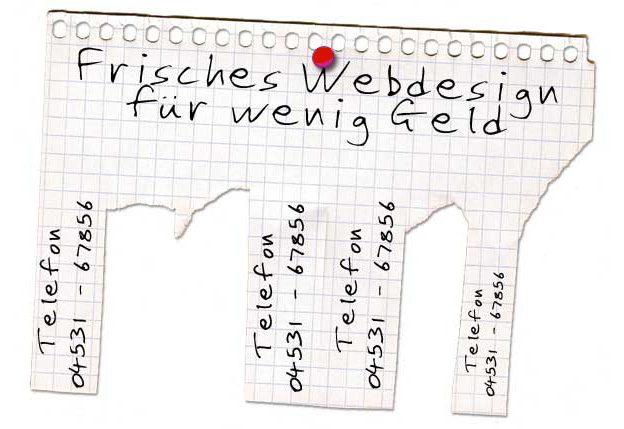 Frisches Webdesign
für wenig Geld
Telefon
04531 - 67856
Telefon
04531 - 67856
Telefon
04531 - 67856
Telefon
04531 - 67856